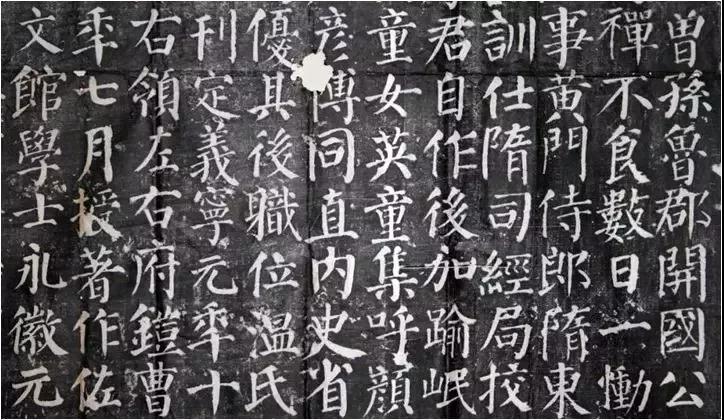 曾孫魯郡開國公
禪不食數日一慟
事黃門侍郎隋東
訓仕隋司經局挍
君自作後加踰岷
童女英童集呼顏
彥博同直內史省
優其後職位溫氏
刊定義寧元年十
右領左右府鎧曹
年七月授著作佐
文館學士永徽元